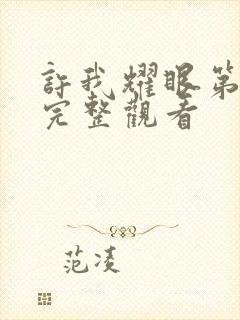 許我耀眼第
完整觀看
范凌